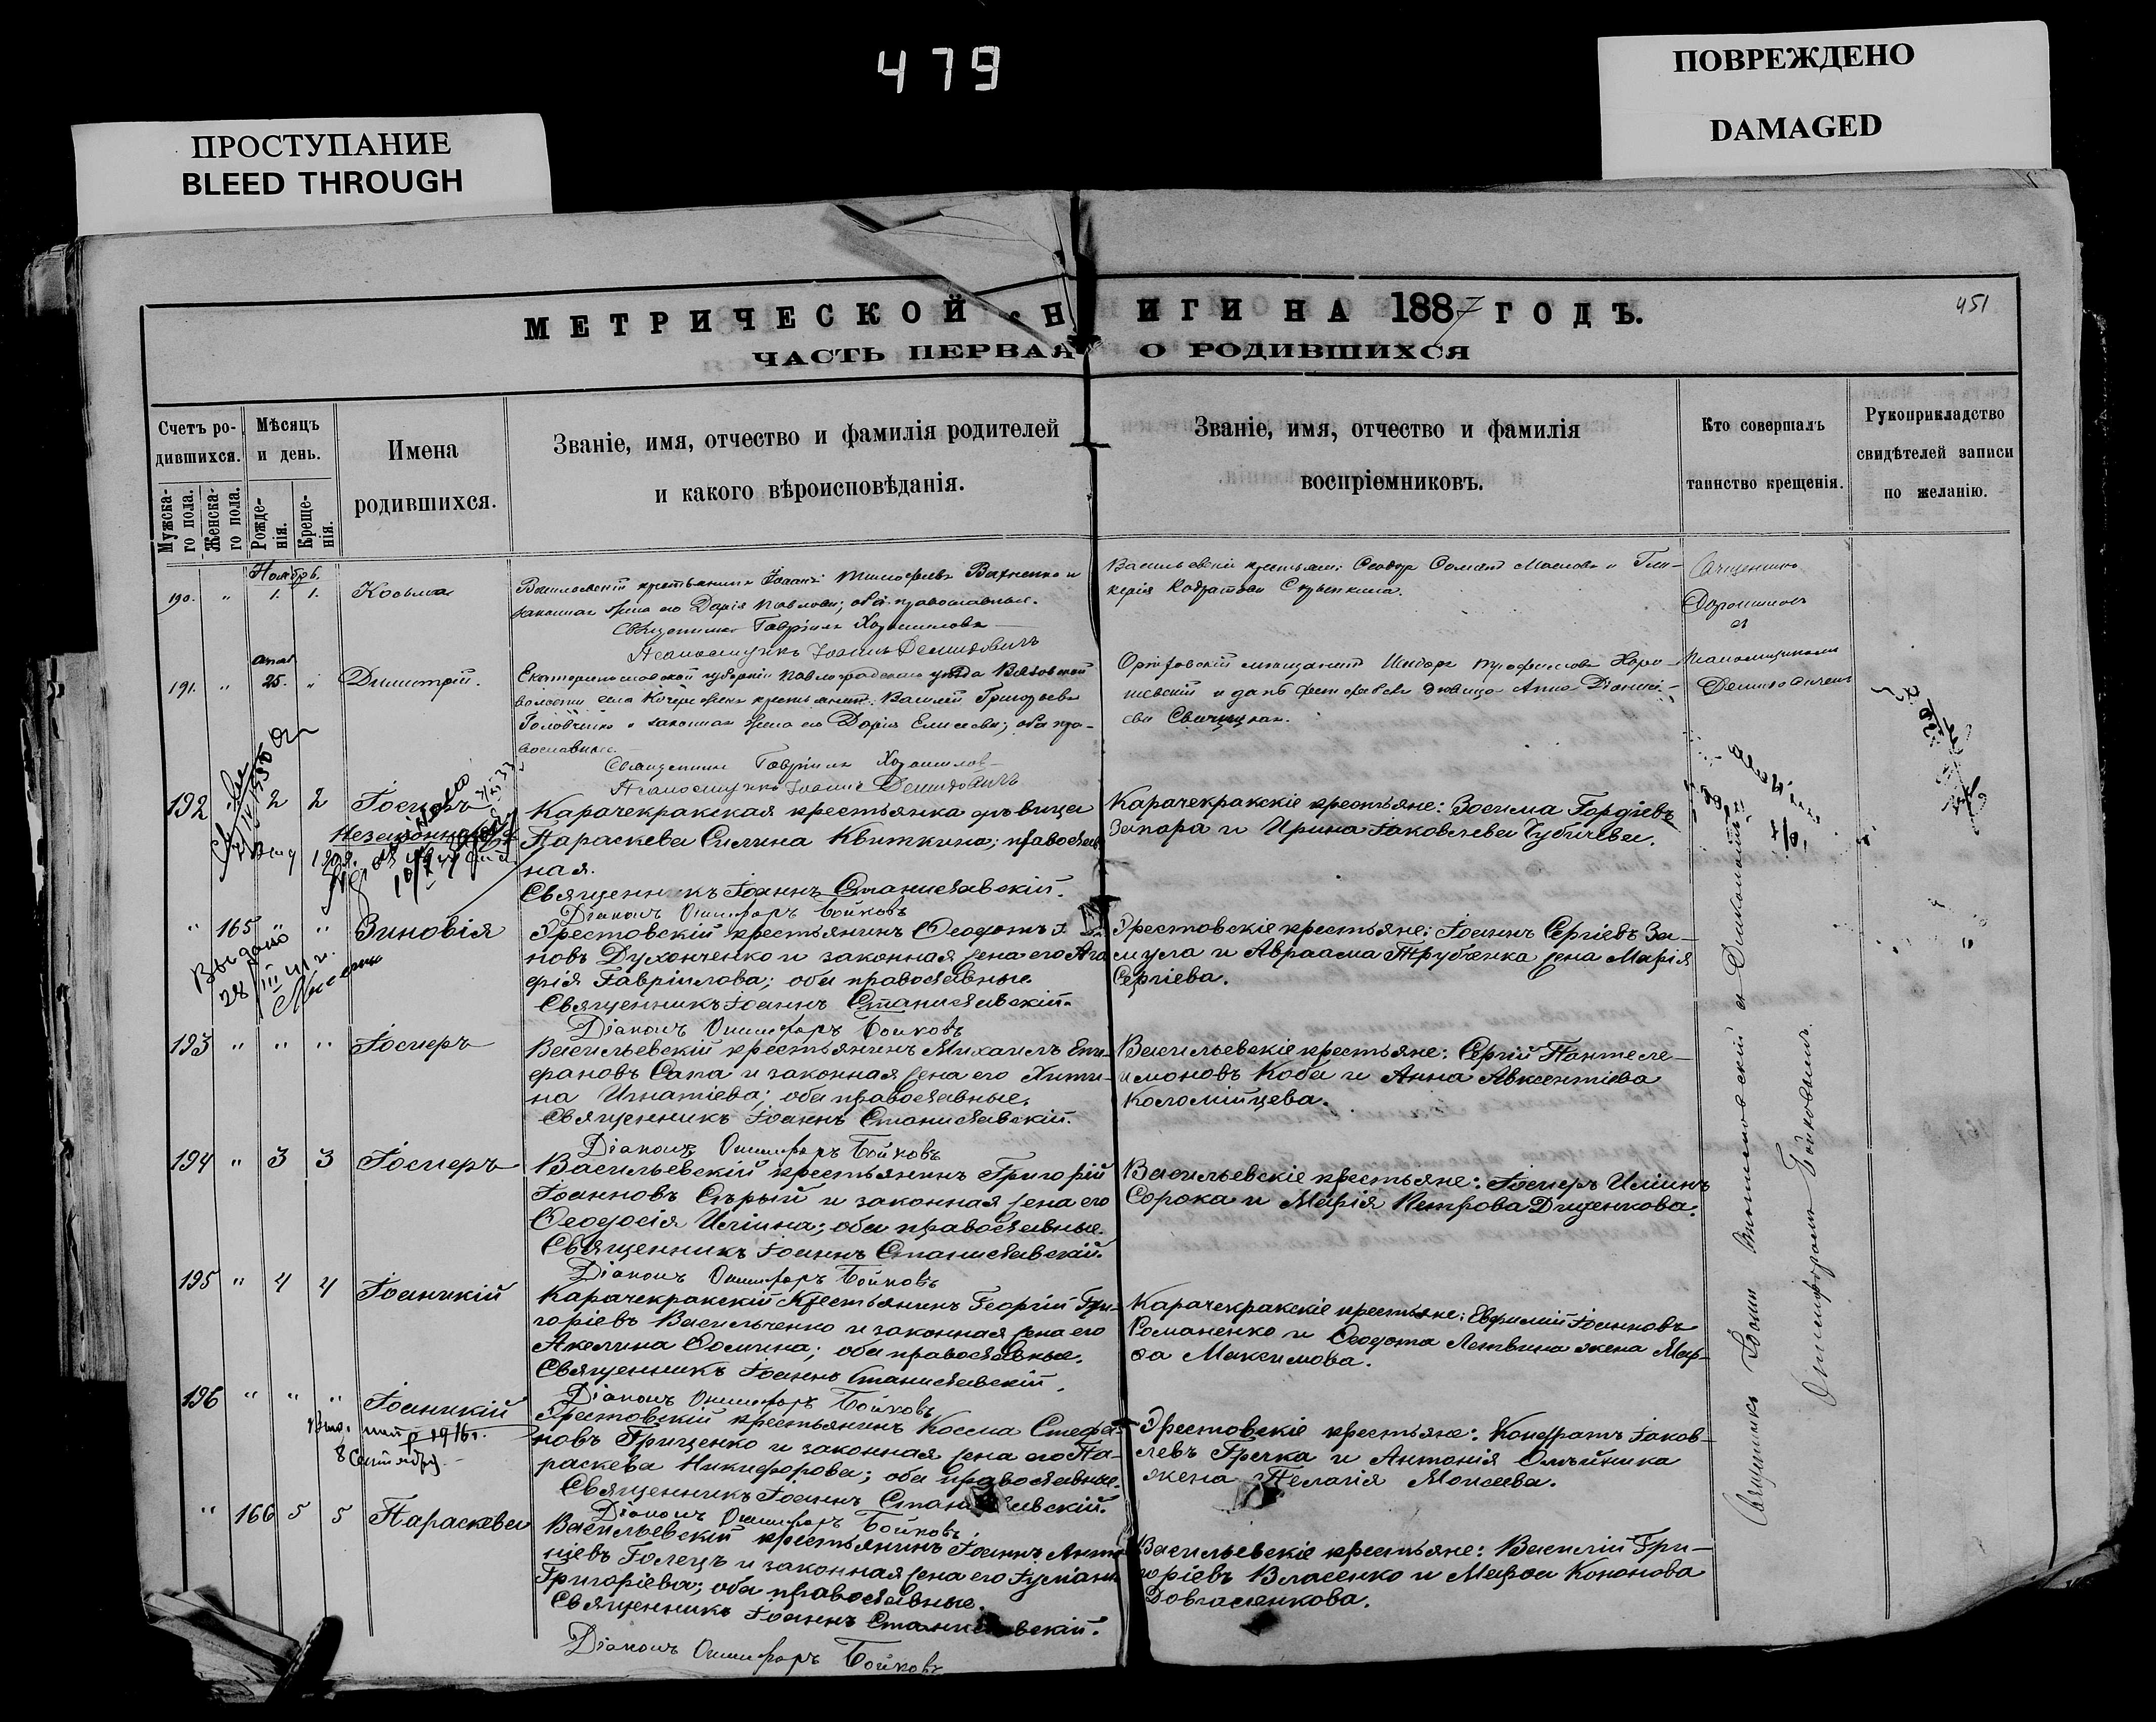 479
ПОВРЕЖДЕНО
DAMAGED
ПРОСТУПАНИЕ
BLEED THROUGH
451
МЕТРИЧЕСКОЙ КНИГИ НА 1887 ГОДЪ.
ЧАСТЬ ПЕРВАЯ О РОДИВШИХСЯ
Счетъ ро-
дившихся.
Мужска-
го пола.
Женска-
го пола.
Мѣсяцъ
и день.
Рожде-
нія.
Креще-
нія.
Имена
родившихся.
Званіе, имя, отчество и фамилія родителей
и какого вѣроисповѣданія.
Званіе, имя, отчество и фамилія
воспріемниковъ.
Кто совершалъ
таинство крещенія.
Рукоприкладство
свидѣтелей записи
по желанію.
Ноябрь.
190. " 1. 1. Косьма
законная жена его Дарія Павлова; оба православные.
Священникъ Гавріилъ
Псаломщикъ Іоаннъ Демидовичъ
Священникъ
191. " 25. " Димитрій.
Екатеринославской губерніи Павлоградскаго уѣзда
волости села крестьянинъ Василій Григорьевъ
и законная жена его Дарія Елисеева; оба пра-
вославные.
Священникъ Гавріилъ
Псаломщикъ Іоаннъ Демидовичъ
Псаломщикомъ
Демидовичемъ
192 " 2 2 Іосифъ
Карачекракская крестьянка дѣвица
Параскева Силина Квиткина; православ
ная.
Священникъ Іоаннъ Станиславскій.
Діаконъ Онисифоръ Бойковъ
Карачекракскіе крестьяне: Зосима Гордіевъ
Запара и Ирина Іаковлева Чубичева.
" 165 " " Зиновія
Выдано
28/III 41 г.
Эрестовскій крестьянинъ Ѳеодотъ І
новъ Духонченко и законная жена его Ага
фія Гавріилова; оба православные.
Священникъ Іоаннъ Станиславскій.
Діаконъ Онисифоръ Бойковъ
Эрестовскіе крестьяне: Іоаннъ Сергіевъ За-
мула и Авраама Трубѣнка жена Марія
Сергіева.
193 " " " Іосифъ
Васильевскій крестьянинъ Михаилъ Епи-
фановъ Сата и законная жена его Хити-
на Игнатіева; оба православные.
Священникъ Іоаннъ Станиславскій.
Діаконъ Онисифоръ Бойковъ
Васильевскіе крестьяне: Сергій Пантеле-
имоновъ Коба и Анна Авксентіева
Коломійцева.
194 " 3 3 Іосифъ
Васильевскій крестьянинъ Григорій
Іоанновъ Сѣрый и законная жена его
Ѳеодосія Иліина; оба православные.
Священникъ Іоаннъ Станиславскій.
Діаконъ Онисифоръ Бойковъ
Васильевскіе крестьяне: Іосифъ Иліинъ
Сорока и Марія Петрова Дищенкова.
195 " 4 4 Іоаникій
Карачекракскій крестьянинъ Георгій Гри-
горіевъ Васильченко и законная жена его
Акелина Ѳомина; оба православные.
Священникъ Іоаннъ Станиславскій.
Діаконъ Онисифоръ Бойковъ
Карачекракскіе крестьяне: Евфимій Іоанновъ
Романенко и Ѳеодота Летвина жена Мар-
ѳа Максимова.
196 " " " Іоаникій
1916 г.
8 Сентября
Эрестовскій крестьянинъ Косма Стефа-
новъ Грищенко и законная жена его Па-
раскева Никифорова; оба православные.
Священникъ Іоаннъ Станиславскій.
Діаконъ Онисифоръ Бойковъ
Эрестовскіе крестьяне: Кондратъ Іаков-
левъ Гречка и Антонія Олѣйника
жена Пелагія Моисеева.
" 166 5 5 Параскева
Васильевскій крестьянинъ Іоаннъ
Голецъ и законная жена его
Григоріева; оба православные.
Священникъ Іоаннъ Станиславскій.
Діаконъ Онисифоръ Бойковъ
Васильевскіе крестьяне: Василій Гри-
горіевъ Власенко и Марѳа Кононова
Довгаленкова.
Священникъ Іоаннъ Станиславскій съ Діакономъ
Онисифоромъ Бойковымъ.